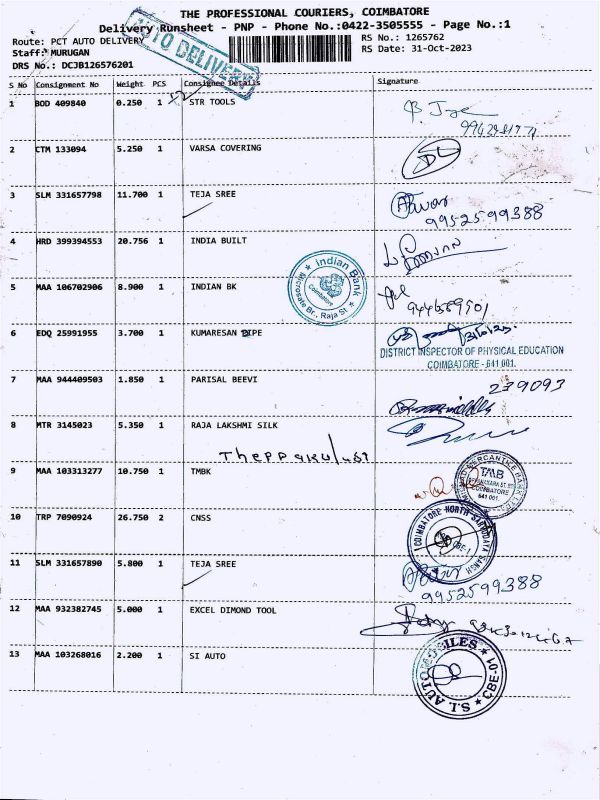 THE PROFESSIONAL COURIERS, COIMBATORE
Delivery Runsheet - PNP - Phone No.:0422-3505555 - Page No.:1
AUTO DELIVERY
Route: PCT AUTO DELIVERY
RS No.: 1265762
Staff: MURUGAN
RS Date: 31-Oct-2023
DRS No.: DCJB126576201
S No Consignment No Weight PCS Consignee Details Signature
1 BOD 409840 0.250 1 STR TOOLS
2 CTM 133094 5.250 1 VARSA COVERING
3 SLM 331657798 11.700 1 TEJA SREE
9952599388
4 HRD 399394553 20.756 1 INDIA BUILT
5 MAA 106702906 8.900 1 INDIAN BK
Indian Bank
Coimbatore
Microsate Br., Raja St
6 EDQ 25991955 3.700 1 KUMARESAN DIPE
DISTRICT INSPECTOR OF PHYSICAL EDUCATION
COIMBATORE - 641 001.
7 MAA 944409503 1.850 1 PARISAL BEEVI
239093
8 MTR 3145023 5.350 1 RAJA LAKSHMI SILK
9 MAA 103313277 10.750 1 TMBK
TMB
COIMBATORE
641 001.
10 TRP 7090924 26.750 2 CNSS
COIMBATORE NORTH SARVODAYA SANGH
CBE-1
11 SLM 331657890 5.800 1 TEJA SREE
9952599388
12 MAA 932382745 5.000 1 EXCEL DIMOND TOOL
13 MAA 103268016 2.200 1 SI AUTO
S.I. AUTOMOBILES
CBE-01